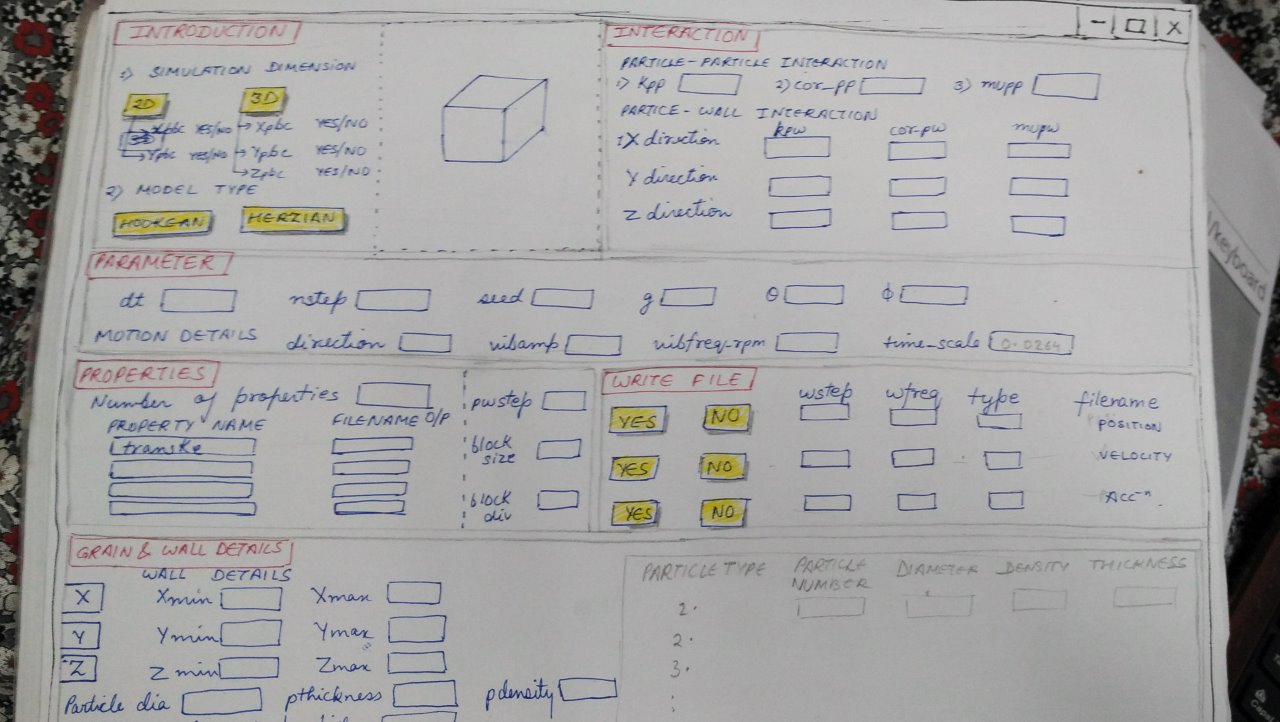 - □ X
INTRODUCTION
1) SIMULATION DIMENSION
2D 3D
Xpbc YES/NO Xpbc YES/NO
Ypbc YES/NO Ypbc YES/NO
Zpbc YES/NO
2) MODEL TYPE
HOOKEAN HERZIAN
INTERACTION
PARTICLE-PARTICLE INTERACTION
1) Kpp 2) cor_pp 3) mupp
PARTICE-WALL INTERACTION
kpw cor-pw mupw
1) X direction
Y direction
Z direction
PARAMETER
dt nstep seed g θ ϕ
MOTION DETAILS direction vibamp vibfreq-rpm time_scale 0.0264
PROPERTIES
Number of properties
PROPERTY NAME FILENAME O/P
transke
pwstep
block size
block div
WRITE FILE
wstep wfreq type filename
YES NO POSITION
YES NO VELOCITY
YES NO ACCⁿ
GRAIN & WALL DETAILS
WALL DETAILS
X Xmin Xmax
Y Ymin Ymax
Z Zmin Zmax
Particle dia pthickness pdensity
PARTICLE TYPE PARTICLE NUMBER DIAMETER DENSITY THICKNESS
2.
2.
3.
keyboard